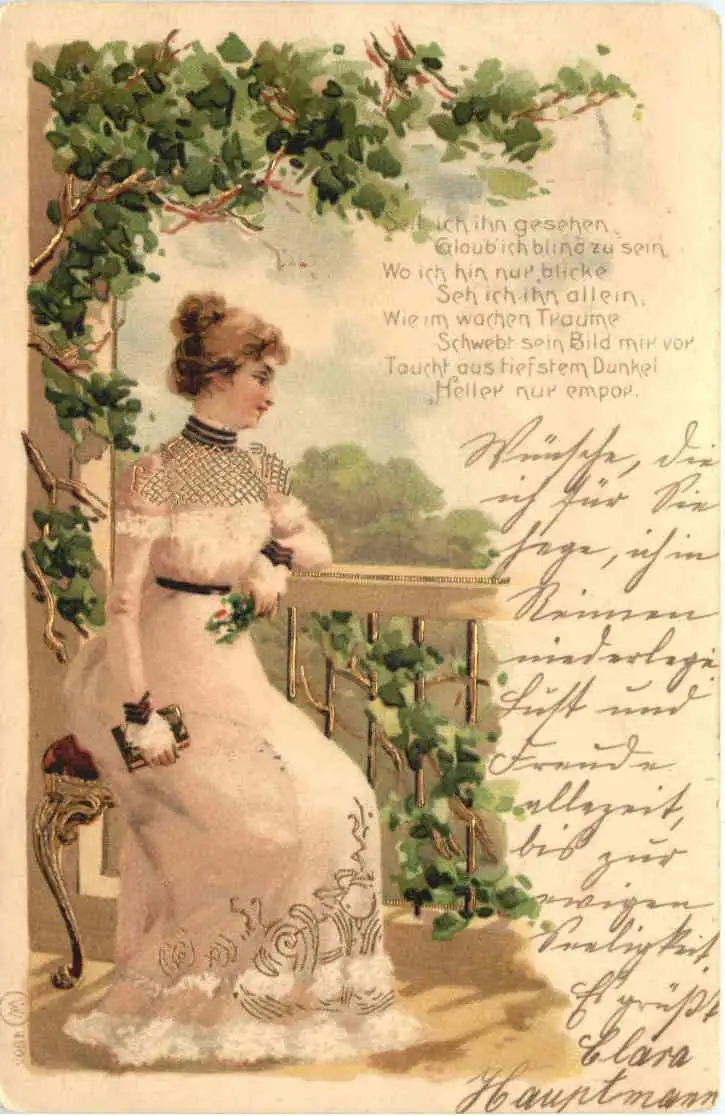 Seit ich ihn gesehen,
Glaub ich blind zu sein,
Wo ich hin nur blicke
Seh ich ihn allein,
Wie im wachen Traume
Schwebt sein Bild mir vor
Taucht aus tiefstem Dunkel
Heller nur empor.
Wünsche, die
ich für Sie
hege, ich in
Reimen
niederlege
Lust und
Freude
allezeit,
bis zur
ewigen
Seeligkeit.
Es grüßt
Clara
Hauptmann
W